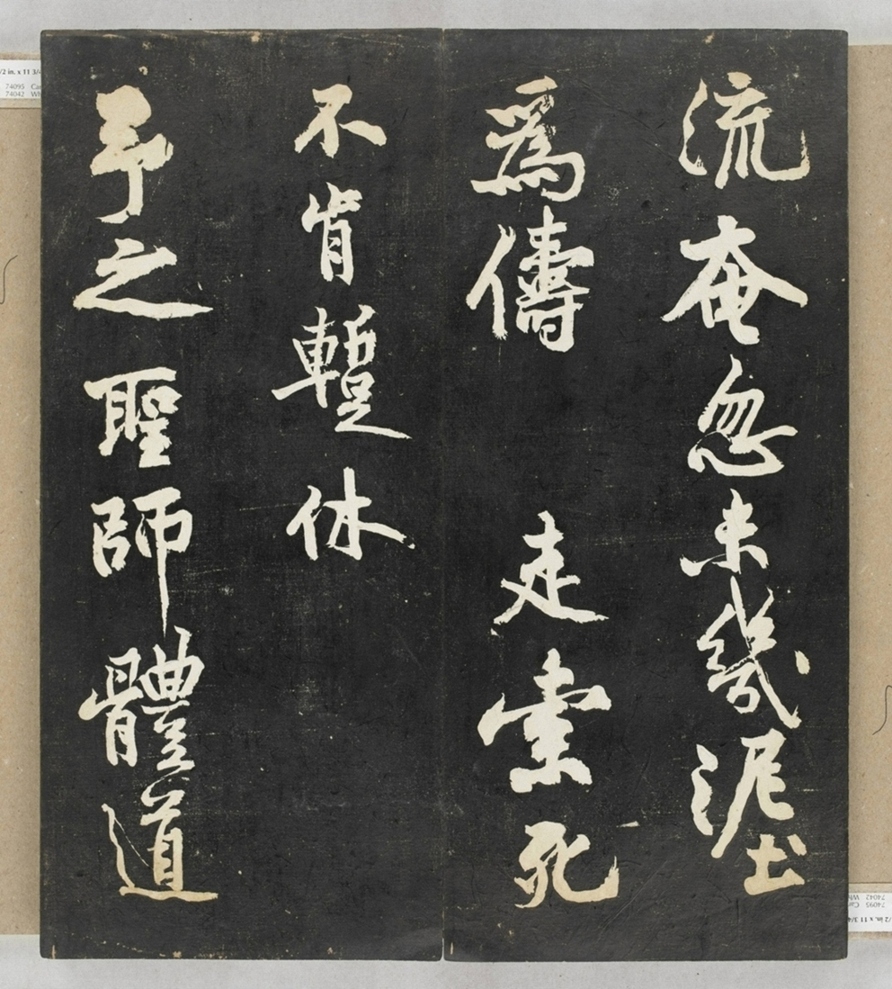 流奄忽未幾泥土
爲儔 走索死
不肯暫休
予之聖師體道
/2 in. x 11 3/4
74095 Ca
74042 W